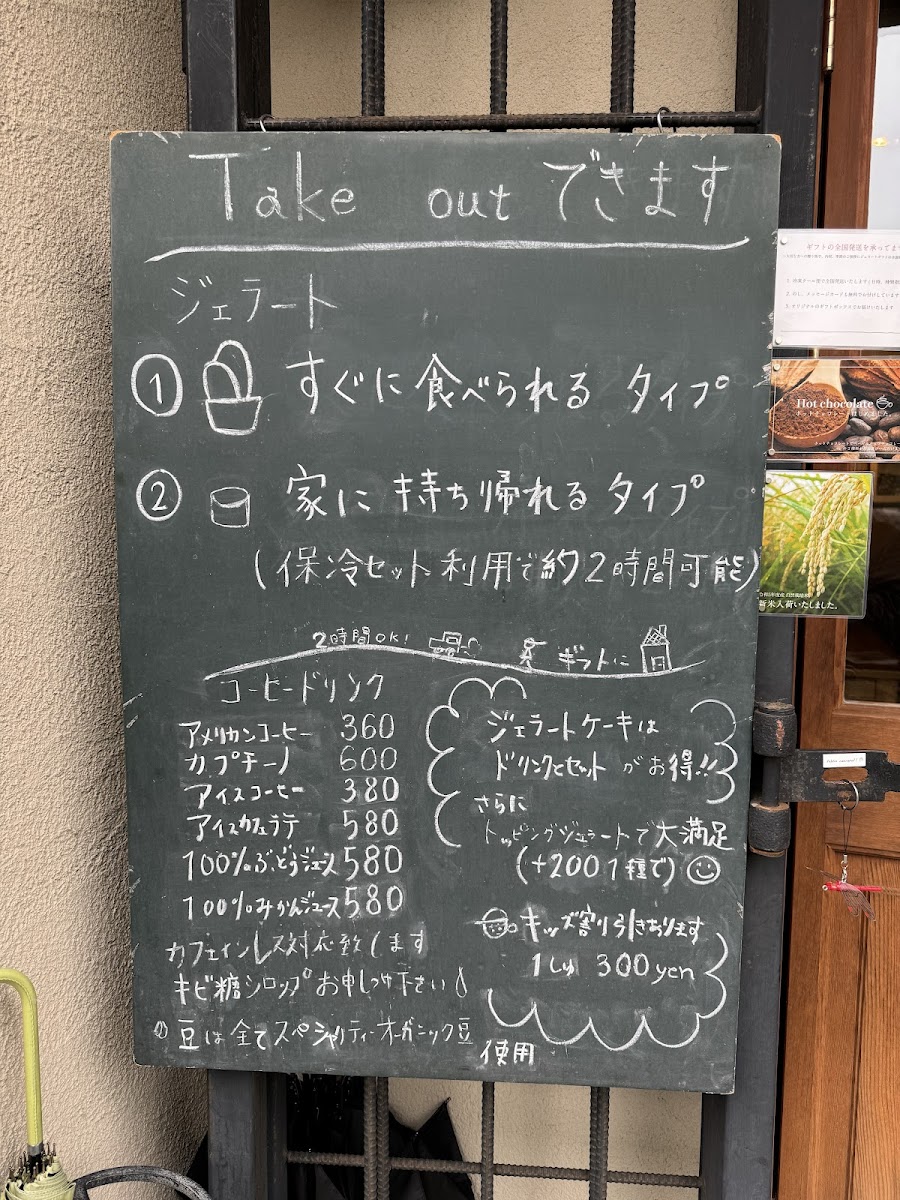 Take out できます
ジェラート
① すぐに食べられる タイプ
② 家に持ち帰れるタイプ
(保冷セット利用で約2時間可能)
2時間OK!
ギフトに
コーヒードリンク
アメリカンコーヒー 360
カプチーノ 600
アイスコーヒー 380
アイスカフェラテ 580
100%ぶどうジュース 580
100%みかんジュース 580
カフェインレス対応致します
キビ糖シロップお申しつけ下さい
豆は全てスペシャリティーオーガニック豆
使用
ジェラートケーキは
ドリンクとセットがお得!!
さらに
トッピングジェラートで大満足
(+200 1種で)
キッズ割り引きあります
1しゅ 300yen
ギフトの全国発送を承ってます
Hot chocolate
ホットチョコレートはじめました。
新米入荷いたしました。